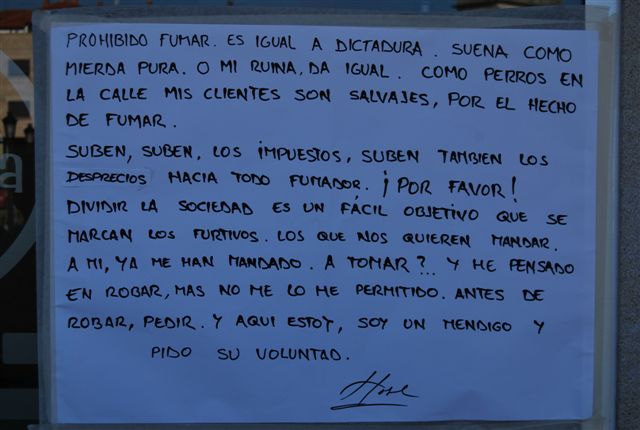 PROHIBIDO FUMAR. ES IGUAL A DICTADURA. SUENA COMO
MIERDA PURA. O MI RUINA, DA IGUAL. COMO PERROS EN
LA CALLE MIS CLIENTES SON SALVAJES, POR EL HECHO
DE FUMAR.
SUBEN, SUBEN, LOS IMPUESTOS, SUBEN TAMBIEN LOS
DESPRECIOS HACIA TODO FUMADOR. ¡POR FAVOR!
DIVIDIR LA SOCIEDAD ES UN FÁCIL OBJETIVO QUE SE
MARCAN LOS FURTIVOS. LOS QUE NOS QUIEREN MANDAR.
A MI, YA ME HAN MANDADO. A TOMAR?... Y HE PENSADO
EN ROBAR, MAS NO ME LO HE PERMITIDO. ANTES DE
ROBAR, PEDIR. Y AQUI ESTOY, SOY UN MENDIGO Y
PIDO SU VOLUNTAD.